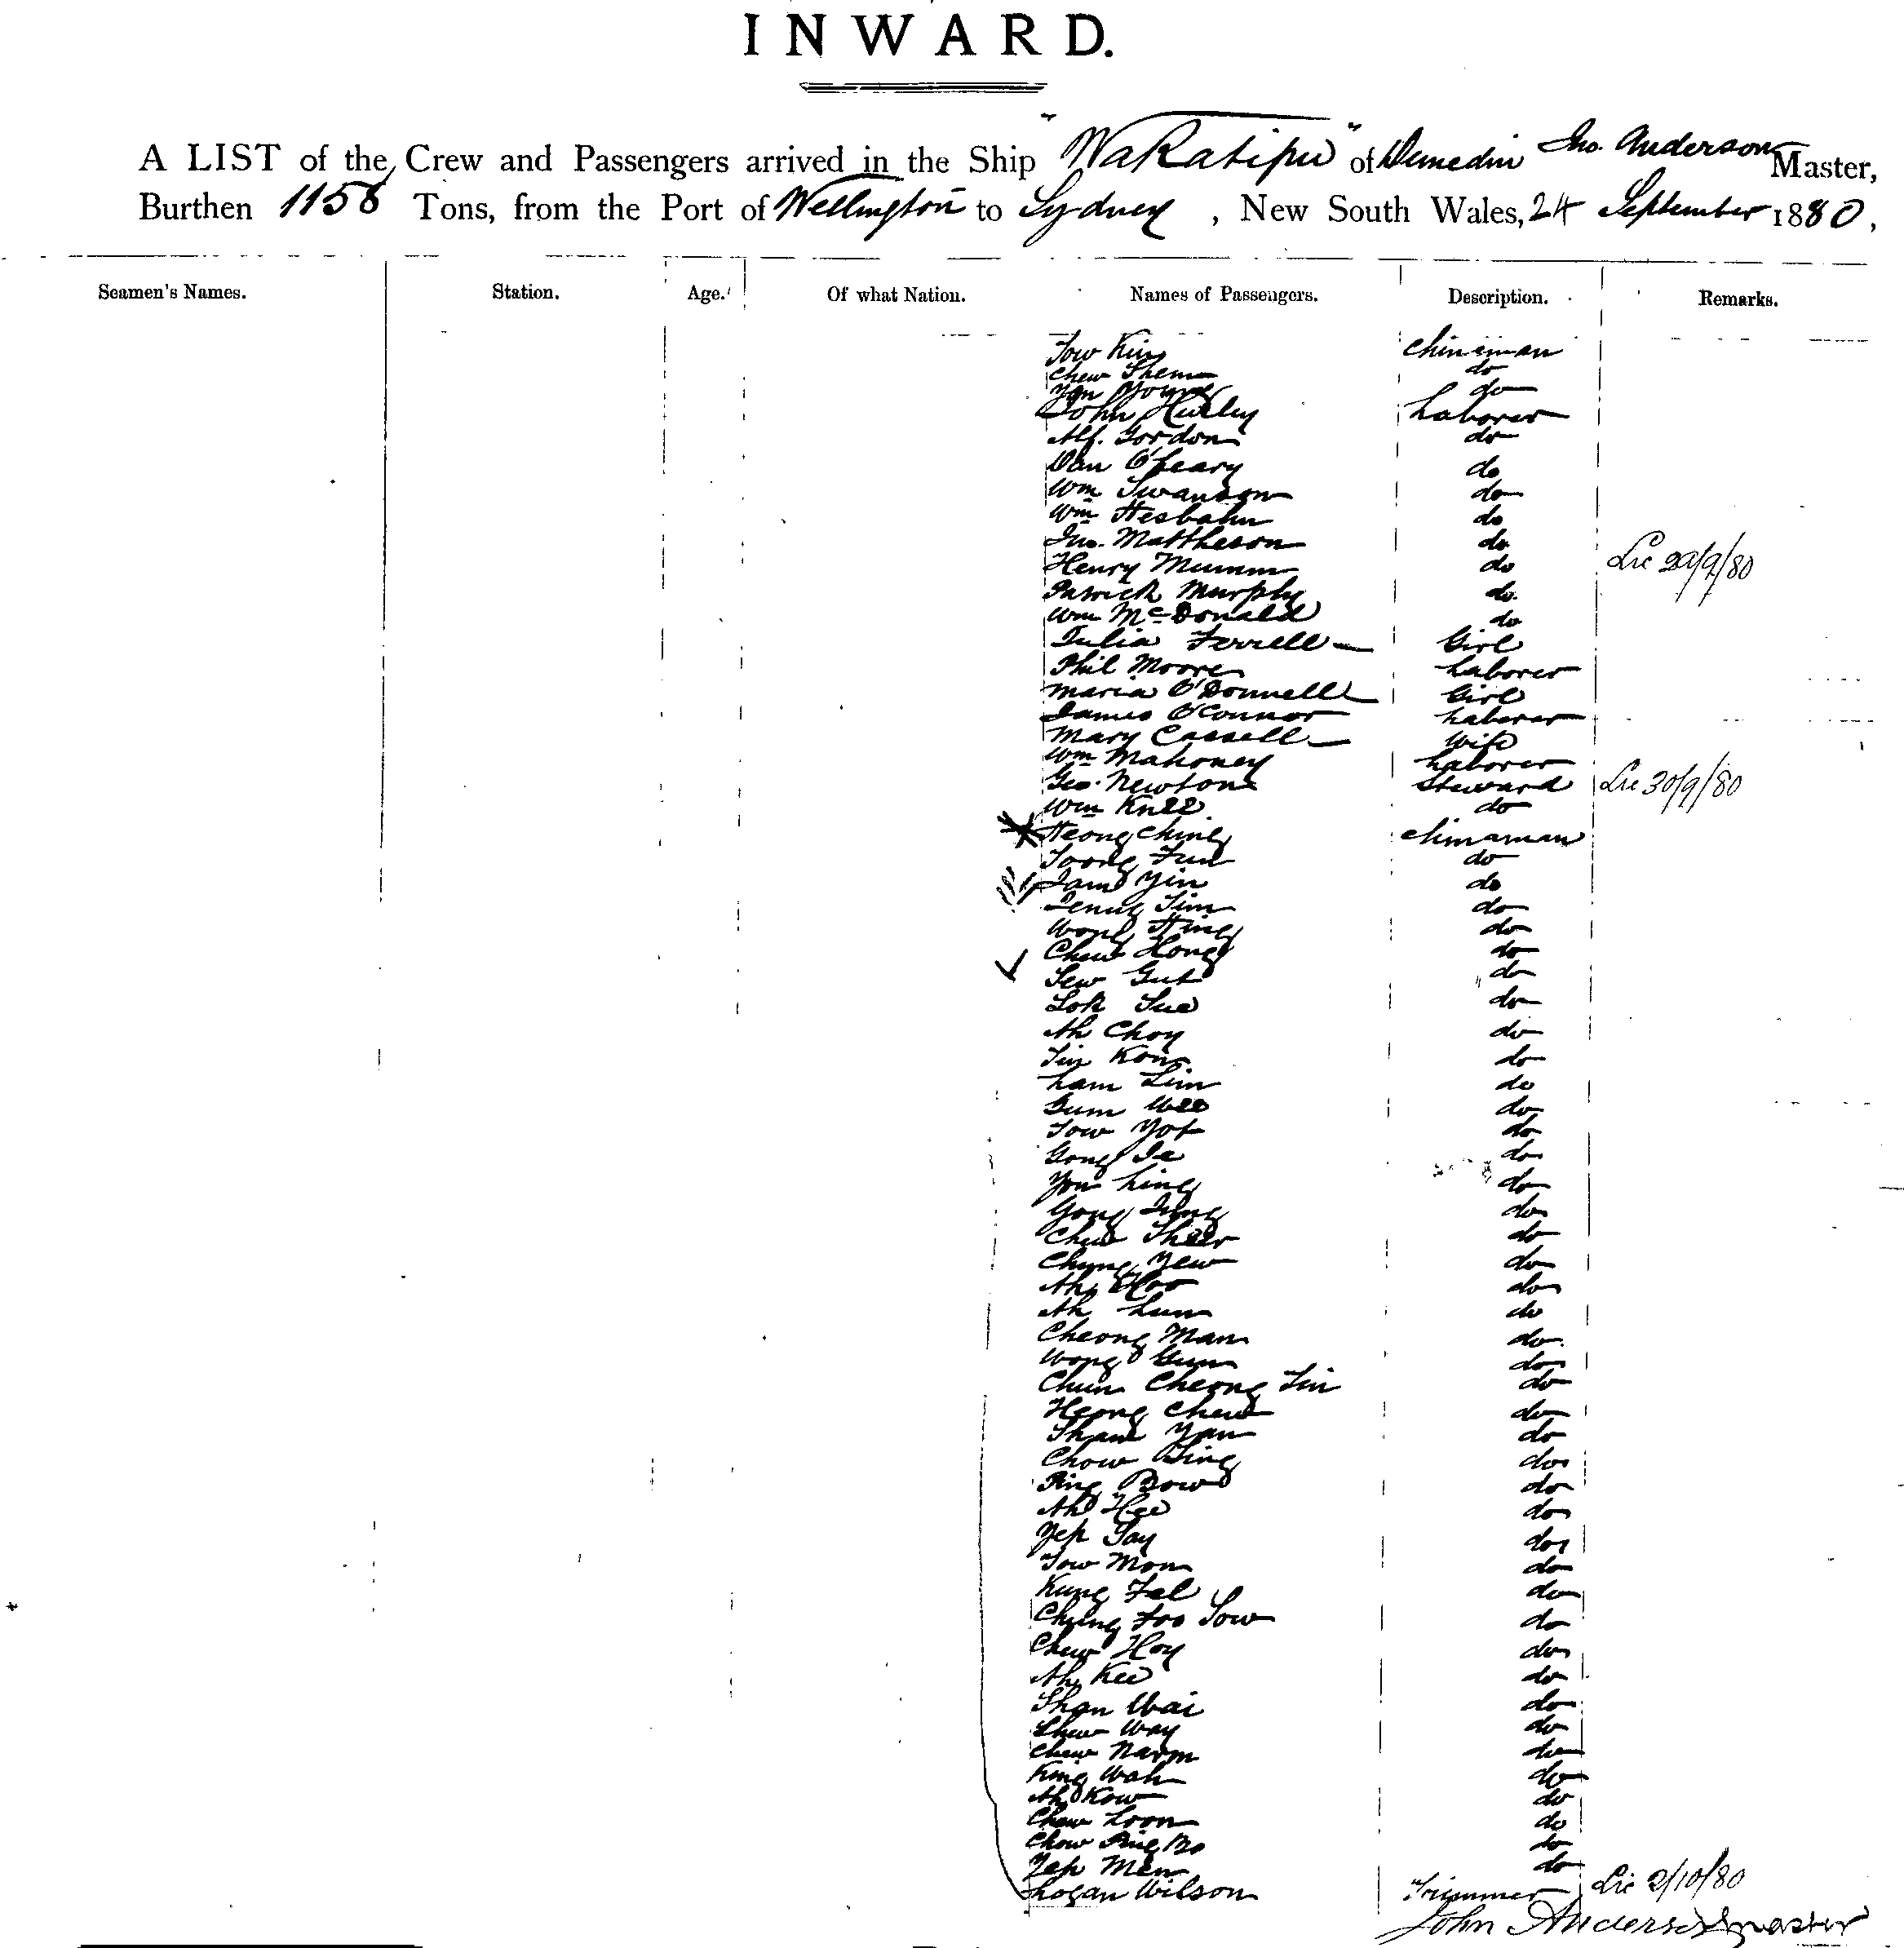 INWARD.
A LIST of the Crew and Passengers arrived in the Ship "Wakatipu" of Dunedin Jno. Anderson Master,
Burthen 1158 Tons, from the Port of Wellington to Sydney, New South Wales, 24 September 1880,
Seamen's Names. Station. Age. Of what Nation. Names of Passengers. Description. Remarks.
Tow King Chinaman
Chew Shem do
Yan Young do
John Hurley Laborer
Alf. Gordon do
Dan O'Leary do
Wm Swanson do
Wm Hesbahn do
Jno. Mattheson do
Henry Mumm do Lic 29/9/80
Patrick Murphy do.
Wm McDonald do
Julia Ferrell Girl
Phil Moore Laborer
Maria O'Donnell Girl
James O'Connor Laborer
Mary Cassell Wife
Wm Mahoney Laborer
Geo. Newton Steward Lic 30/9/80
Wm Knee do
Heong Ching Chinaman
Toong Fun do
Yin do
do
Wong Hing do
Chew Hong do
Sew Gut do
Lok Sue do
Ah Choy do
Tin Kong do
Lam Lim do
Gum Wee do
Tow Yot do
Gong do
Yow Ling do
Gong do
Chew Sheer do
Chung Yew do
Ah do
Ah Lum do
Cheong Man do.
Wong Gum do
Chun Cheong Tin do
Heong Chew do
Yan do
Chow do
Ping Bow do
Ah Hee do
Yep Say do
Tow Mon do
Kung do
Chung Foo Sow do
Chew Hoy do
Ah Kee do
Shan Wai do
Chew Way do
Chew Narm do
King Wah do
Ah Kow do
Chew Loon do
Chow Ping Bo do
Yep Men do
Logan Wilson Trimmer Lic 2/10/80
John Anderson Master